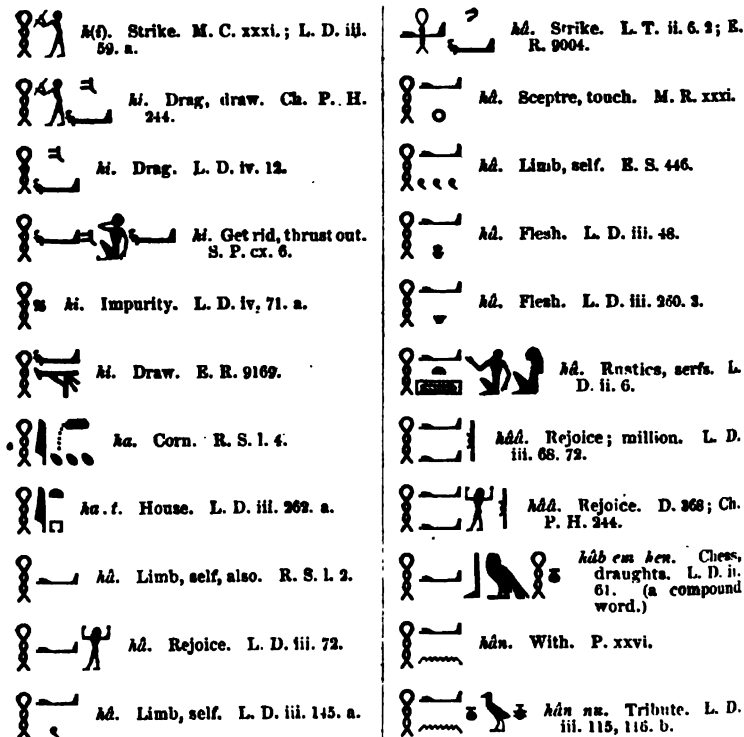 h(f). Strike. M. C. xxxi.; L. D. iii.
59. a.
hi. Drag, draw. Ch. P. H.
244.
hi. Drag. L. D. iv. 12.
hi. Get rid, thrust out.
S. P. cx. 6.
hi. Impurity. L. D. iv. 71. a.
hi. Draw. E. R. 9169.
ha. Corn. R. S. l. 4.
ha.t. House. L. D. iii. 262. a.
hâ. Limb, self, also. R. S. l. 2.
hâ. Rejoice. L. D. iii. 72.
hâ. Limb, self. L. D. iii. 145. a.
hâ. Strike. L. T. ii. 6. 2; E.
R. 9004.
hâ. Sceptre, touch. M. R. xxxi.
hâ. Limb, self. E. S. 446.
hâ. Flesh. L. D. iii. 48.
hâ. Flesh. L. D. iii. 260. 3.
hâ. Rustics, serfs. L.
D. ii. 6.
hââ. Rejoice; million. L. D.
iii. 68. 72.
hââ. Rejoice. D. 368; Ch.
P. H. 244.
hâb em hen. Chess,
draughts. L. D. ii.
61. (a compound
word.)
hân. With. P. xxvi.
hân nu. Tribute. L. D.
iii. 115, 116. b.